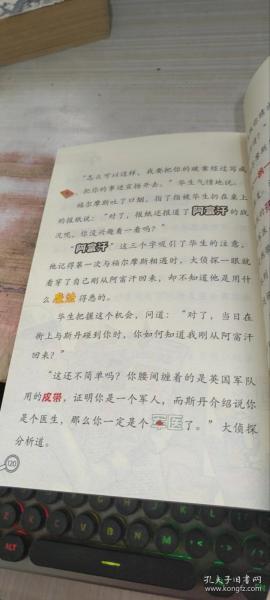 “怎么可以这样，我要把你的破案经过写成
，把你的事迹宣扬开去。”华生气愤地说。
福尔摩斯吐了口烟，指了指被华生扔在桌上
的报纸说：“对了，报纸还报道了阿富汗的战
况呢，你没兴趣看一看吗？”
“阿富汗”这三个字吸引了华生的注意，
他记得第一次与福尔摩斯相遇时，大侦探一眼就
看穿了自己刚从阿富汗回来，却不知道他是用什
么 得悉的。
华生把握这个机会，问道：“对了，当日在
街上与斯丹碰到你时，你如何知道我刚从阿富汗
回来？”
“这还不简单吗？你腰间缠着的是英国军队
用的皮带，证明你是一个军人，而斯丹介绍说你
是个医生，那么你一定是个军医了。”大侦探
分析道。
120
ALT
孔夫子旧书网